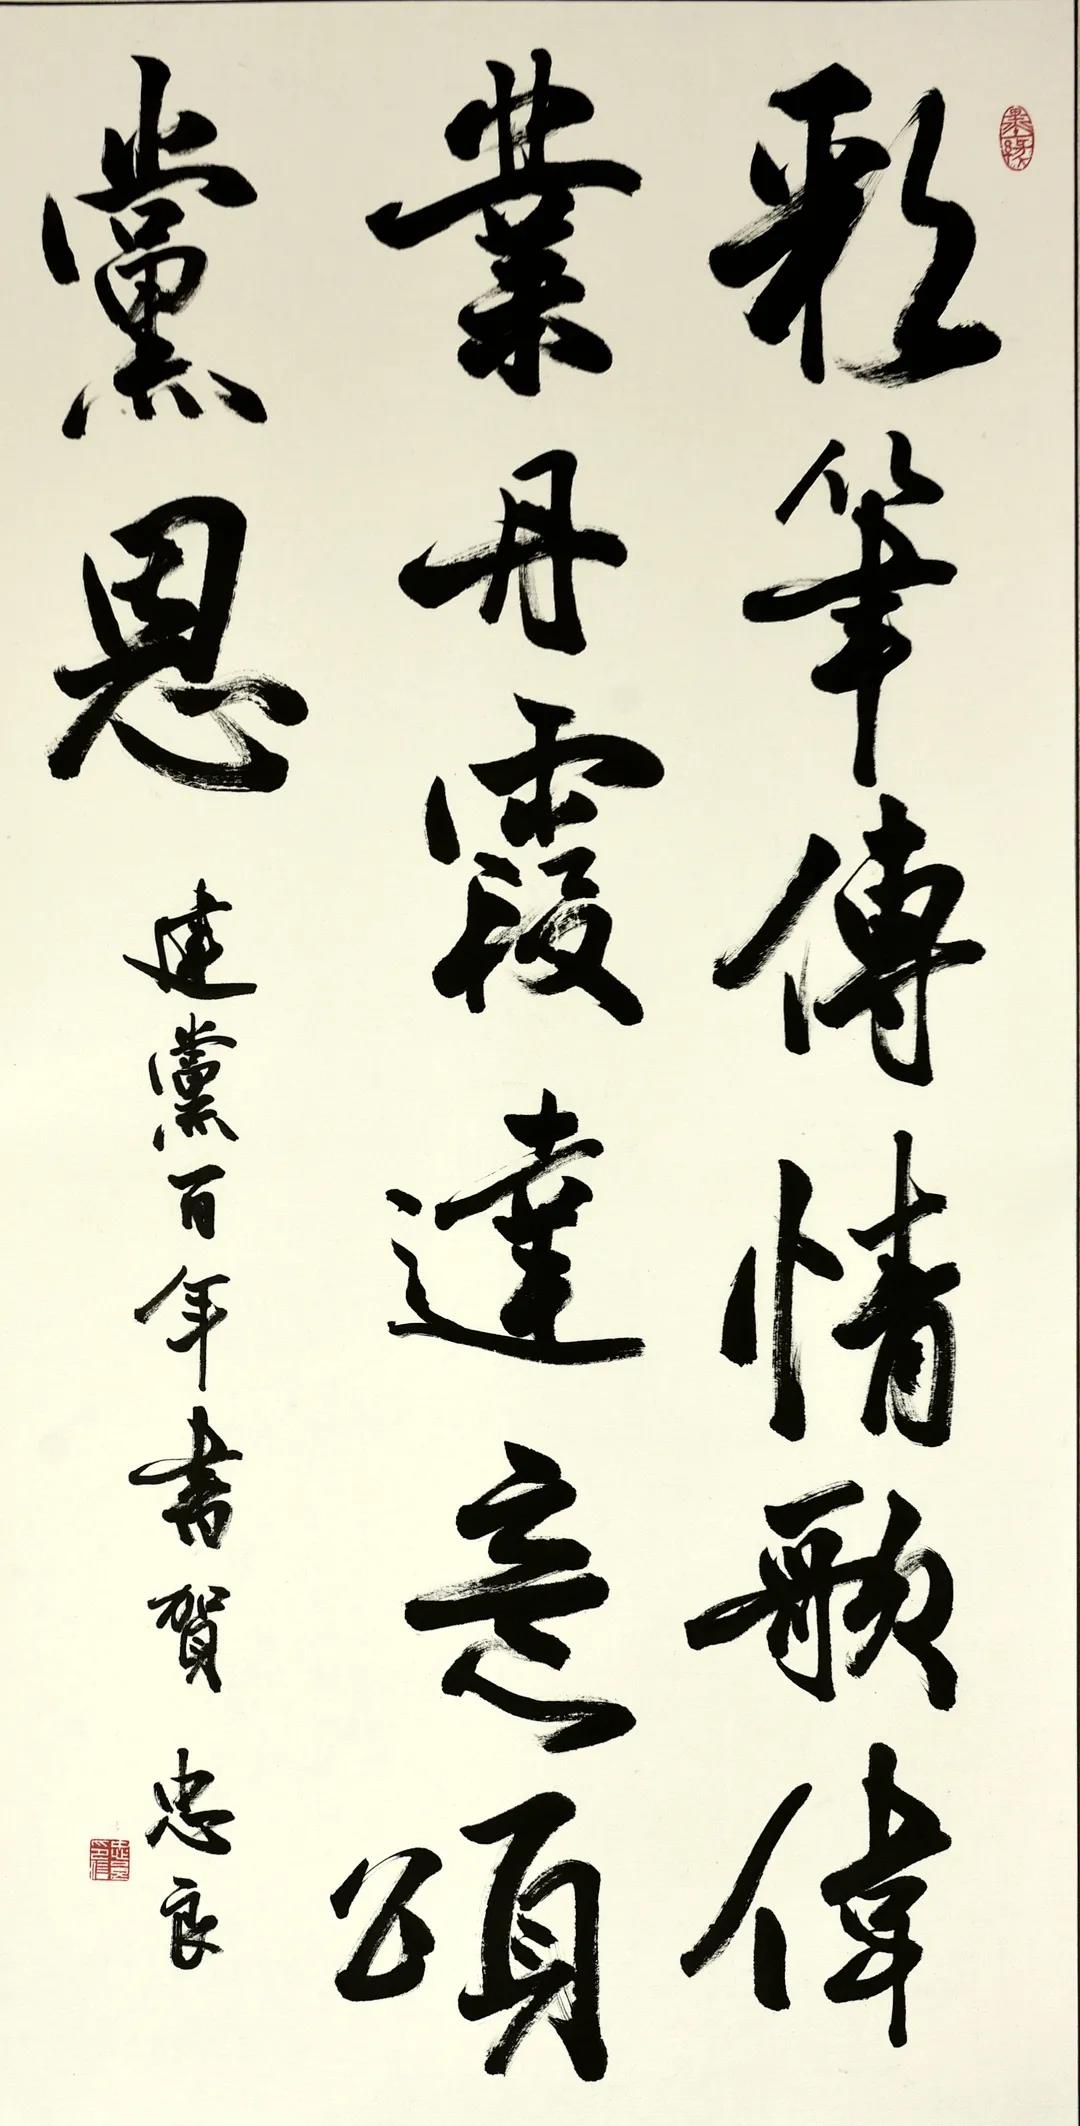 彩筆傳情歌偉
業丹霞達意頌
黨恩
建黨百年書賀 忠良